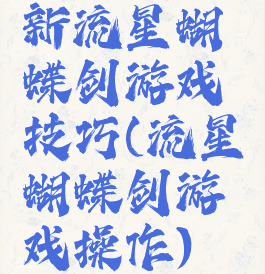 新流星蝴
蝶剑游戏
技巧(流星
蝴蝶剑游
戏操作)